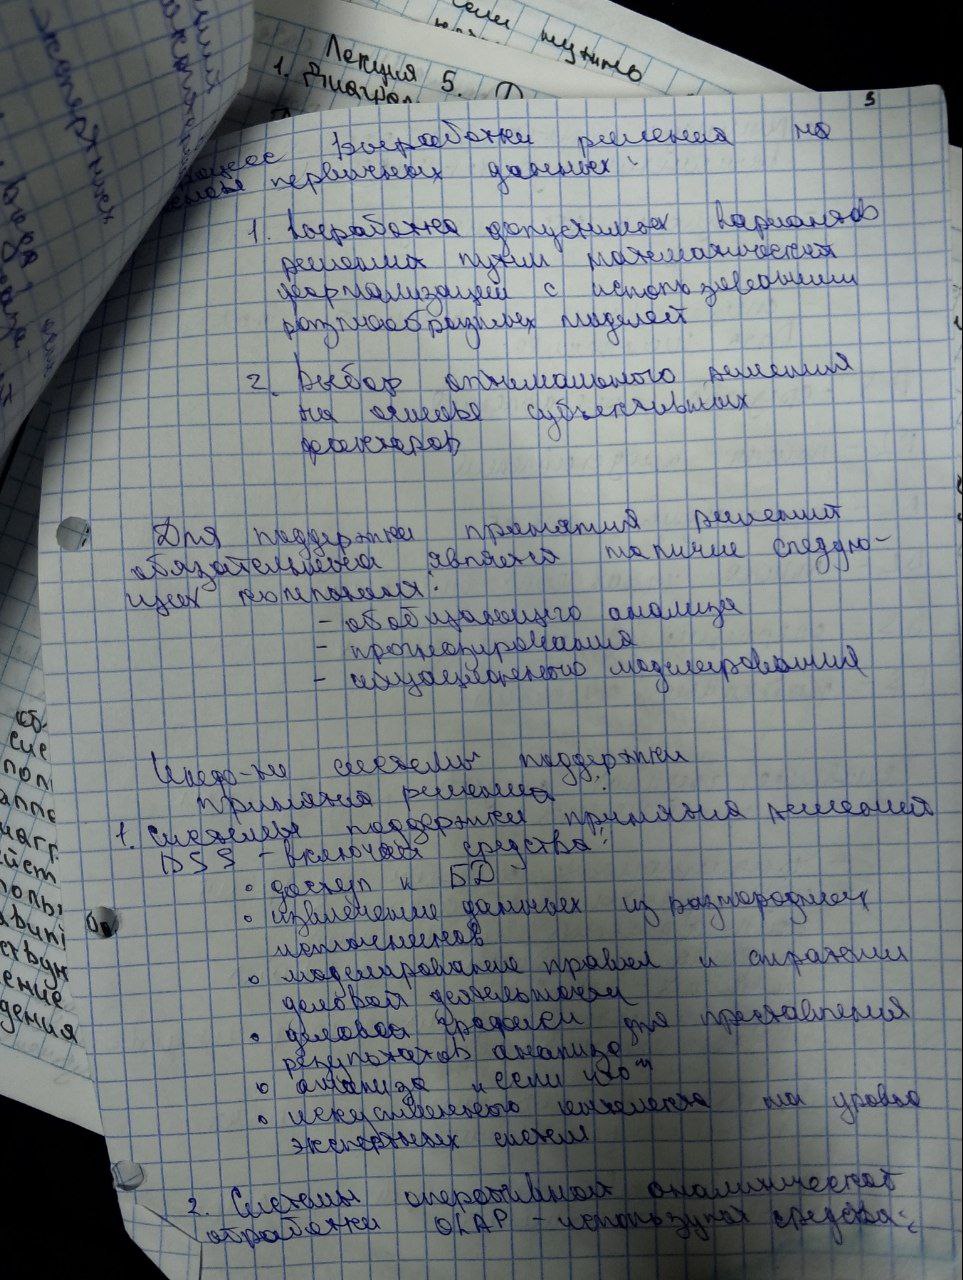 Лекция 5.
1. Диаграм
3
выработки решения на
первичных данных:
1. Выработка допустимых вариантов
решения путём математической
формализацией с использованием
разнообразных моделей
2. Выбор оптимального решения
на основе субъективных
факторов
Для поддержки принятия решений
обязательным является наличие следую-
щих компонент:
- обобщающего анализа
- прогнозирования
- ситуационного моделирования
системы поддержки
принятия решений:
1. Системы поддержки принятия решений
DSS - включает средства:
• доступ к БД
• извлечение данных из разнородных
источников
• моделирование правил и стратегии
деловой деятельности
• деловой графики для представления
результатов анализа
• анализа "если что"
• искусственного интеллекта на уровне
экспертных систем
2. Системы оперативной аналитической
обработки OLAP - используют средства: